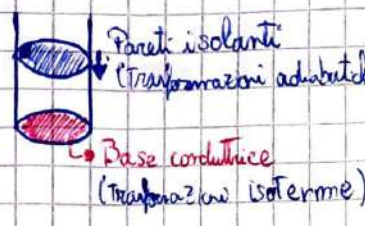 Pareti isolanti
(Trasformazioni adiabatich
Base conduttrice
(Trasformazioni isoterme)